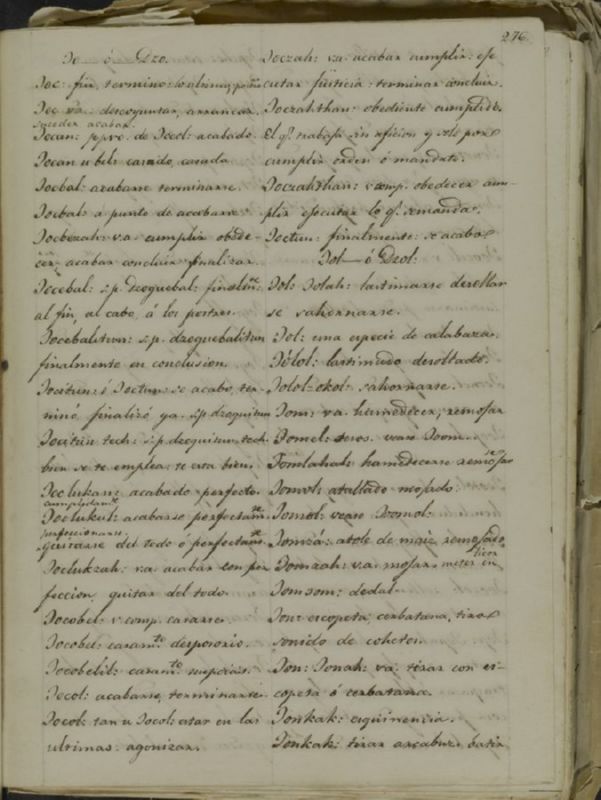 276.
Ɔo — ó Dzo.
Ɔoc: fin, termino: lo ultimo,
Ɔoc va: descoyuntar, arrancar,
suceder acabar.
Ɔocan: ppro. de Ɔocol: acabado
Ɔocan u bel: casado, casada
Ɔocbal: acabarse terminarse.
Ɔocbal: a punto de acabarse
Ɔocbezah: va. cumplir obede-
cer, acabar concluir finalizar.
Ɔocebal: s.p. Dzoquebal: finalmte
al fin, al cabo, á los postres.
Ɔocebalitun: s.p. dzoquebalitun
finalmente en conclusion.
Ɔocitun: ó Ɔoctun: se acabo, ter-
minó, finalizó ya. s.p. dzoquitun
Ɔocitun tech: s.p. dzoquitun tech
bien se te emplea: te esta bien.
Ɔoclukan: acabado perfecto.
cumplidamte
Ɔoclukul: acabarse perfectamte
perfeccionarse.
quitarse del todo ó perfectamte
Ɔoclukzah: va. acabar con per
feccion, quitar del todo.
Ɔocobel: v comp. casarse.
Ɔocobel: casamto desposorio.
Ɔocobelil: casamto nupcias.
Ɔocol: acabarse, terminarse.
Ɔocol: tan u Ɔocol: estar en las
ultimas: agonizar.
Ɔoczah: va: acabar cumplir: eje
cutar justicia: terminar concluir.
Ɔoczahthan: obediente cumplido.
El q. trabaja sin aficion y solo por
cumplir orden ó mandato.
Ɔoczahthan: v comp. obedecer cum-
plir ejecutar lo q. se manda.
Ɔoctun: finalmente: se acabo
Ɔol — ó Dzol:
Ɔol: Ɔolah: lastimarse desollar
se sahornarse.
Ɔol: una especie de calabaza.
Ɔólol: lastimado desollado.
Ɔolol-okol: sahornarse.
Ɔom: va. humedecer, remojar
Ɔomel: vease Ɔoom.
Ɔomlahal: humedecerse remojarse
Ɔomol: mojado.
Ɔomol: vease Ɔoomol.
Ɔomzá: atole de maiz remojado
Ɔomzah: va. mojar, meter en
Ɔomsom: dedal
Ɔon: escopeta, cerbatana, tiro
sonido de cohetes.
Ɔon: Ɔonah: va. tirar con es-
copeta ó cerbatana.
Ɔonkak: esquinencia.
Ɔonkak: tirar arcabuz, batir